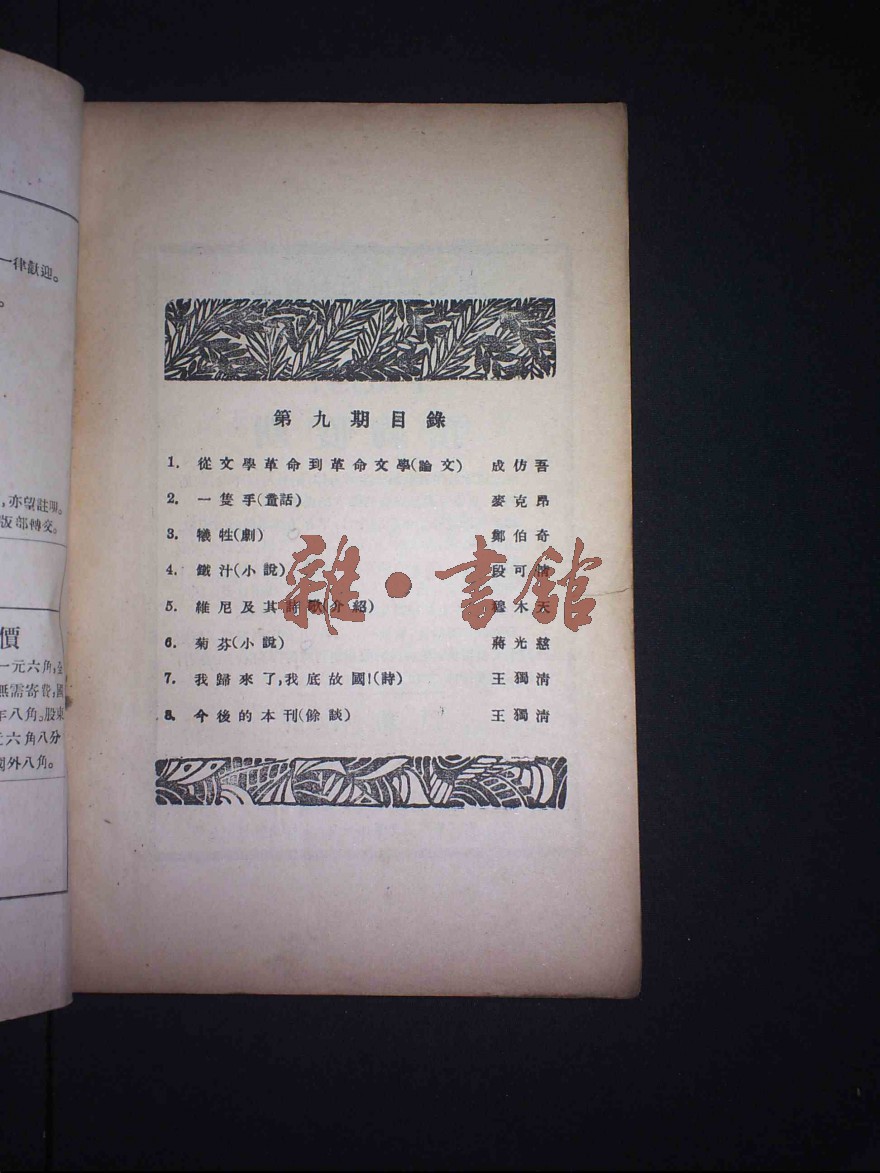 一律歡迎。
。
，亦望註明。
版部轉交。
價
一元六角，全
無需寄費，國
年八角。股東
元六角八分
國外八角。
第九期目錄
1. 從文學革命到革命文學(論文) 成仿吾
2. 一隻手(童話) 麥克昂
3. 犧牲(劇) 鄭伯奇
4. 鐵汁(小說) 段可情
5. 維尼及其詩歌(介紹) 穆木天
6. 菊芬(小說) 蔣光慈
7. 我歸來了，我底故國！(詩) 王獨清
8. 今後的本刊(餘談) 王獨清
雜·書館